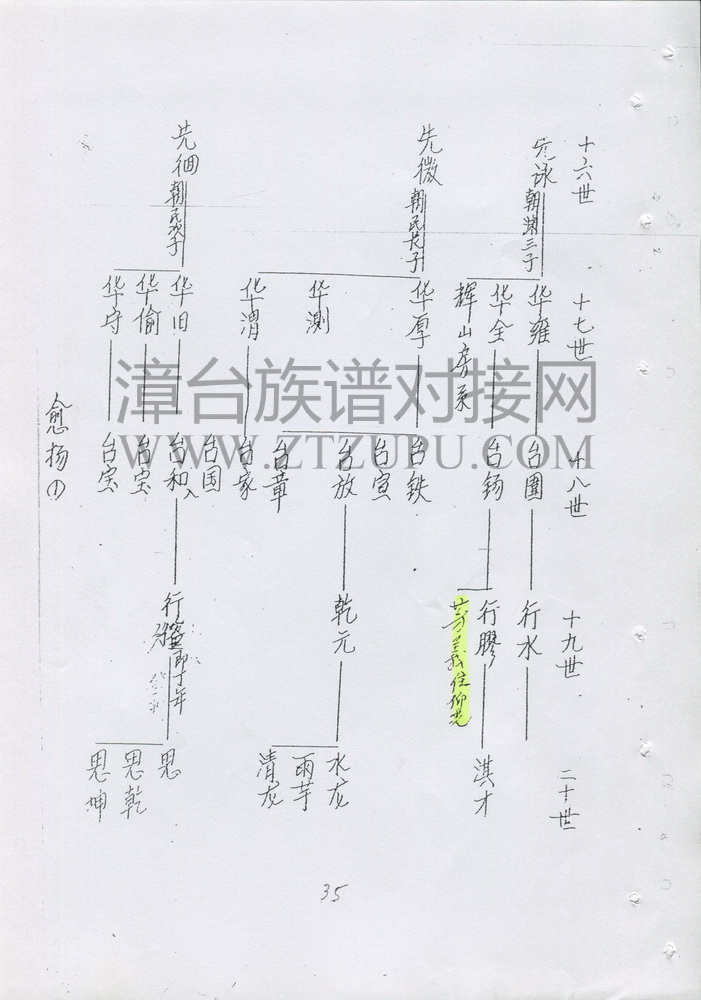 十六世
先泳 朝渊三子
先微 朝民长子
先徊 朝民次子
十七世
华雍
华全
辉山房系
华厚
华测
华渭
华旧
华偷
华守
十八世
台围
台钖
台铁
台宣
台放
台章
台家
台国
台和
台宝
台宾
十九世
行水
行膠
芽義住仰光
乾元
行 即丁年
二十世
淇才
水龙
雨芋
清龙
思
思乾
思坤
愈扬①
35
漳台族谱对接网
WWW.ZTZUPU.COM